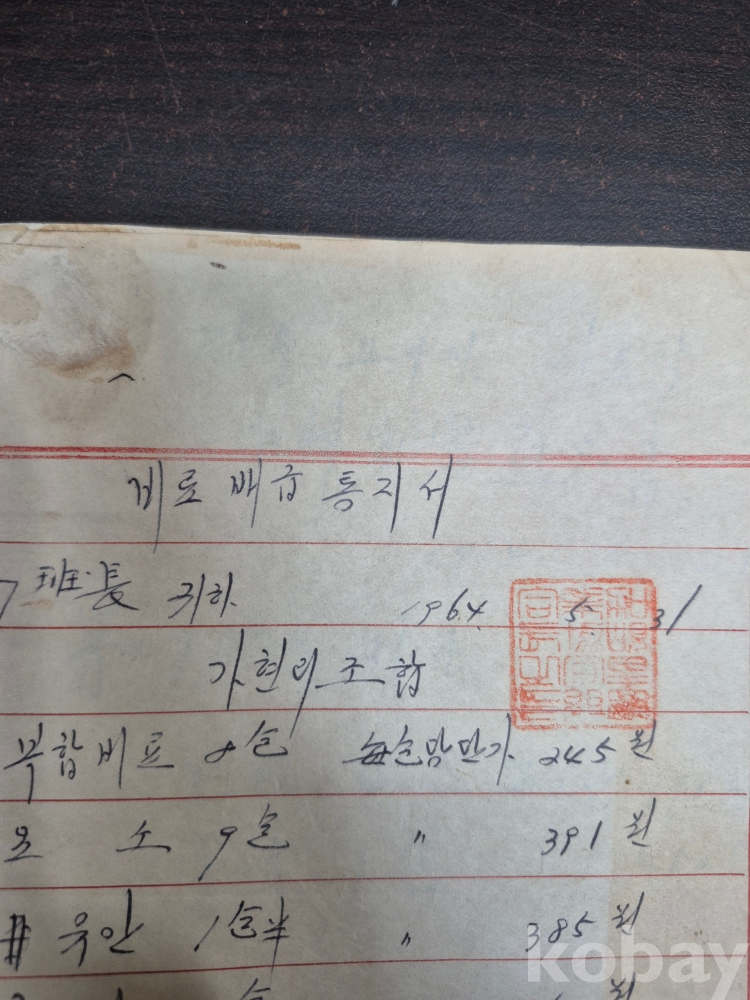 비료배급통지서
7 班長 귀하 1964. 5. 31
가현리조합
복합비료 8包 每包当단가 245원
요소 9包 〃 391원
# 유안 1包半 〃 385원
包 원
kobay